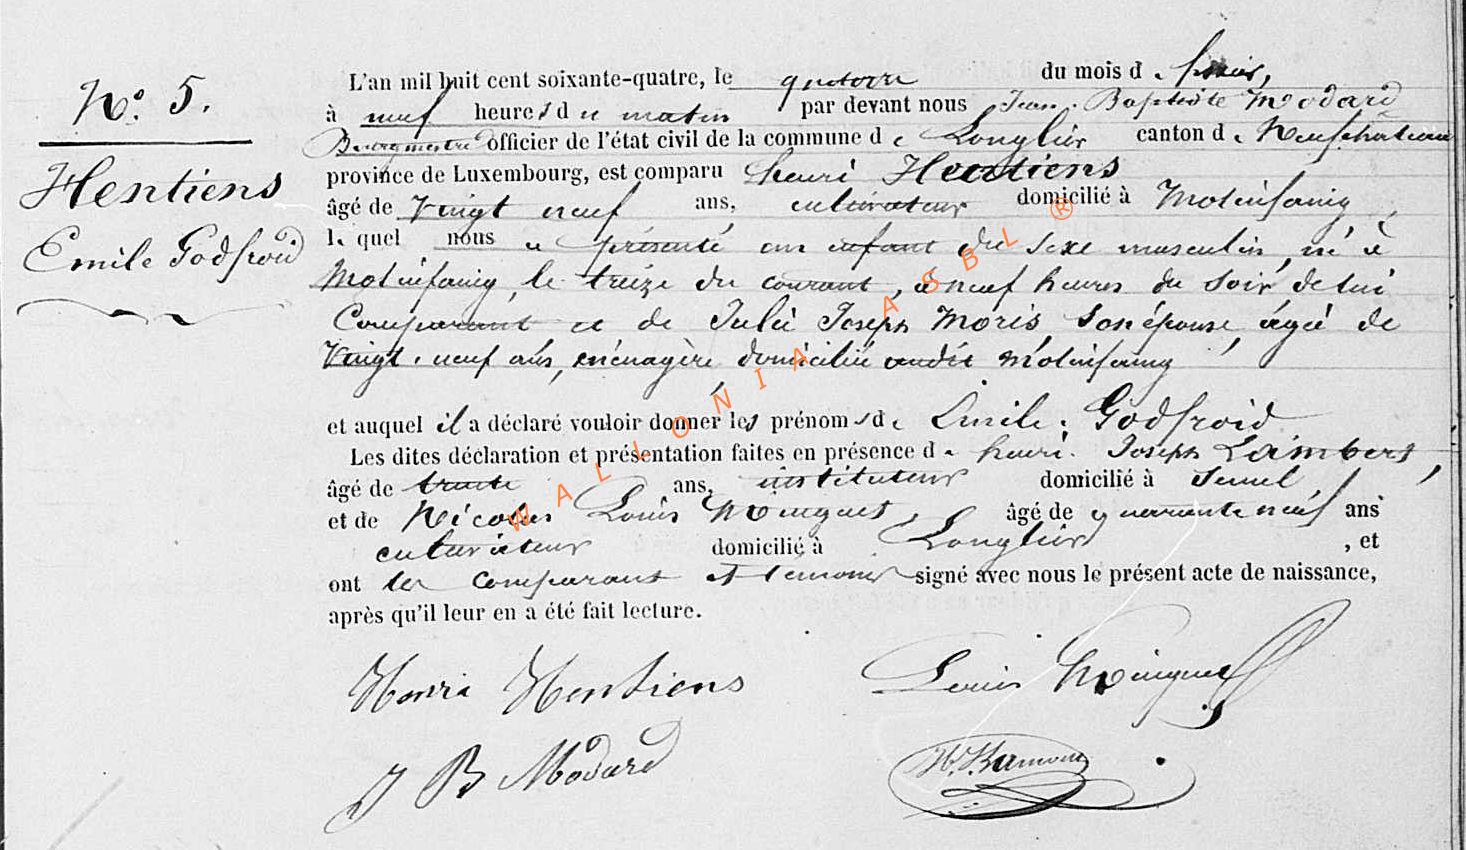 N.° 5.
Hentiens
Emile Godfroid
L'an mil huit cent soixante-quatre, le quatorze du mois de
à neuf heures du matin par devant nous Jean-Baptiste Modard
Bourgmestre officier de l'état civil de la commune de Longlier canton de Neufchâteau
province de Luxembourg, est comparu henri Hentiens
âgé de Vingt neuf ans, cultivateur domicilié à Molinfaing
le quel nous a présenté un enfant du sexe masculin, né à
Molinfaing, le treize du courant, à neuf heures du soir de lui
Comparant et de Julie Joseph Moris son épouse, agée de
Vingt-neuf ans, ménagère domiciliée audit Molinfaing
et auquel il a déclaré vouloir donner les prénoms de Emile. Godfroid
Les dites déclaration et présentation faites en présence de henri. Joseph
âgé de trente ans, instituteur domicilié à Semel,
et de Nicolas Louis Minguet, âgé de quarante neuf ans
cultivateur domicilié à Longlier, et
ont les comparant et témoins signé avec nous le présent acte de naissance,
après qu'il leur en a été fait lecture.
Henri Hentiens
Louis Minguet
J B Modard
WALLONIA ASBL ®